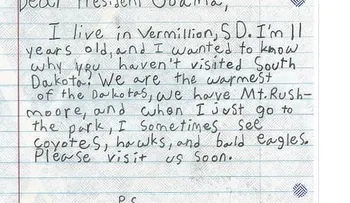 Dear President Obama,
I live in Vermillion, SD. I'm 11
years old, and I wanted to know
why you haven't visited South
Dakota? We are the warmest
of the Dakotas, we have Mt. Rush-
moore, and when I just go to
the park, I sometimes see
coyotes, hawks, and bald eagles.
Please visit us soon.
P.S.